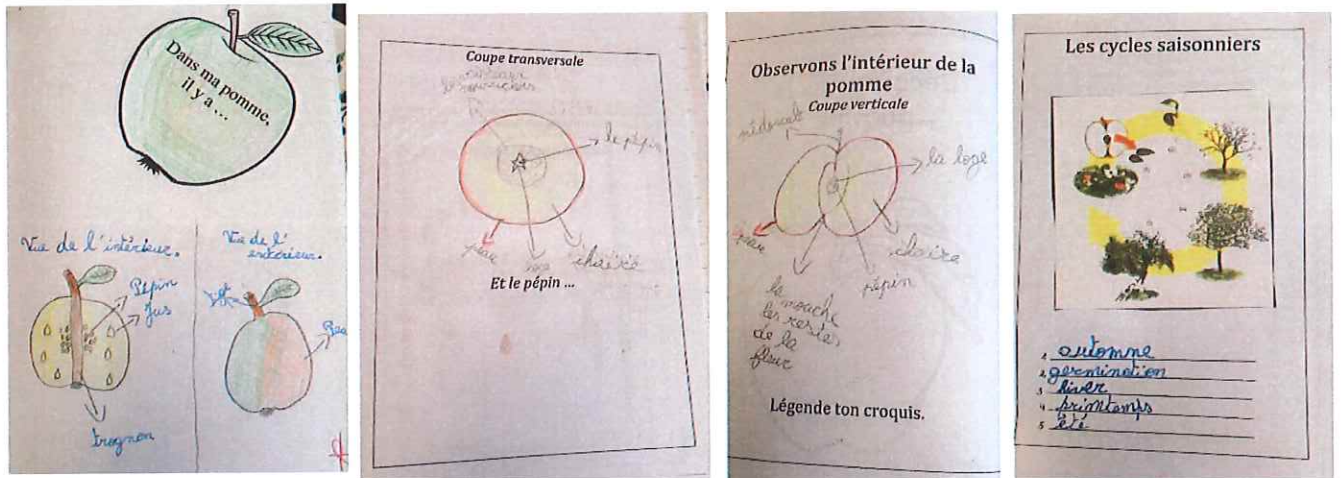 Dans ma pomme,
il y a ...
Vue de l'intérieur.
Pépin
Jus
trognon
Vue de l'
extérieur.
Coupe transversale
le pépin
peau
chaire
Et le pépin ...
Observons l'intérieur de la
pomme
Coupe verticale
la loge
peau
chaire
pépin
la mouche
les restes
de la
fleur
Légende ton croquis.
Les cycles saisonniers
1 automne
2 germination
3 hiver
4 printemps
5 été